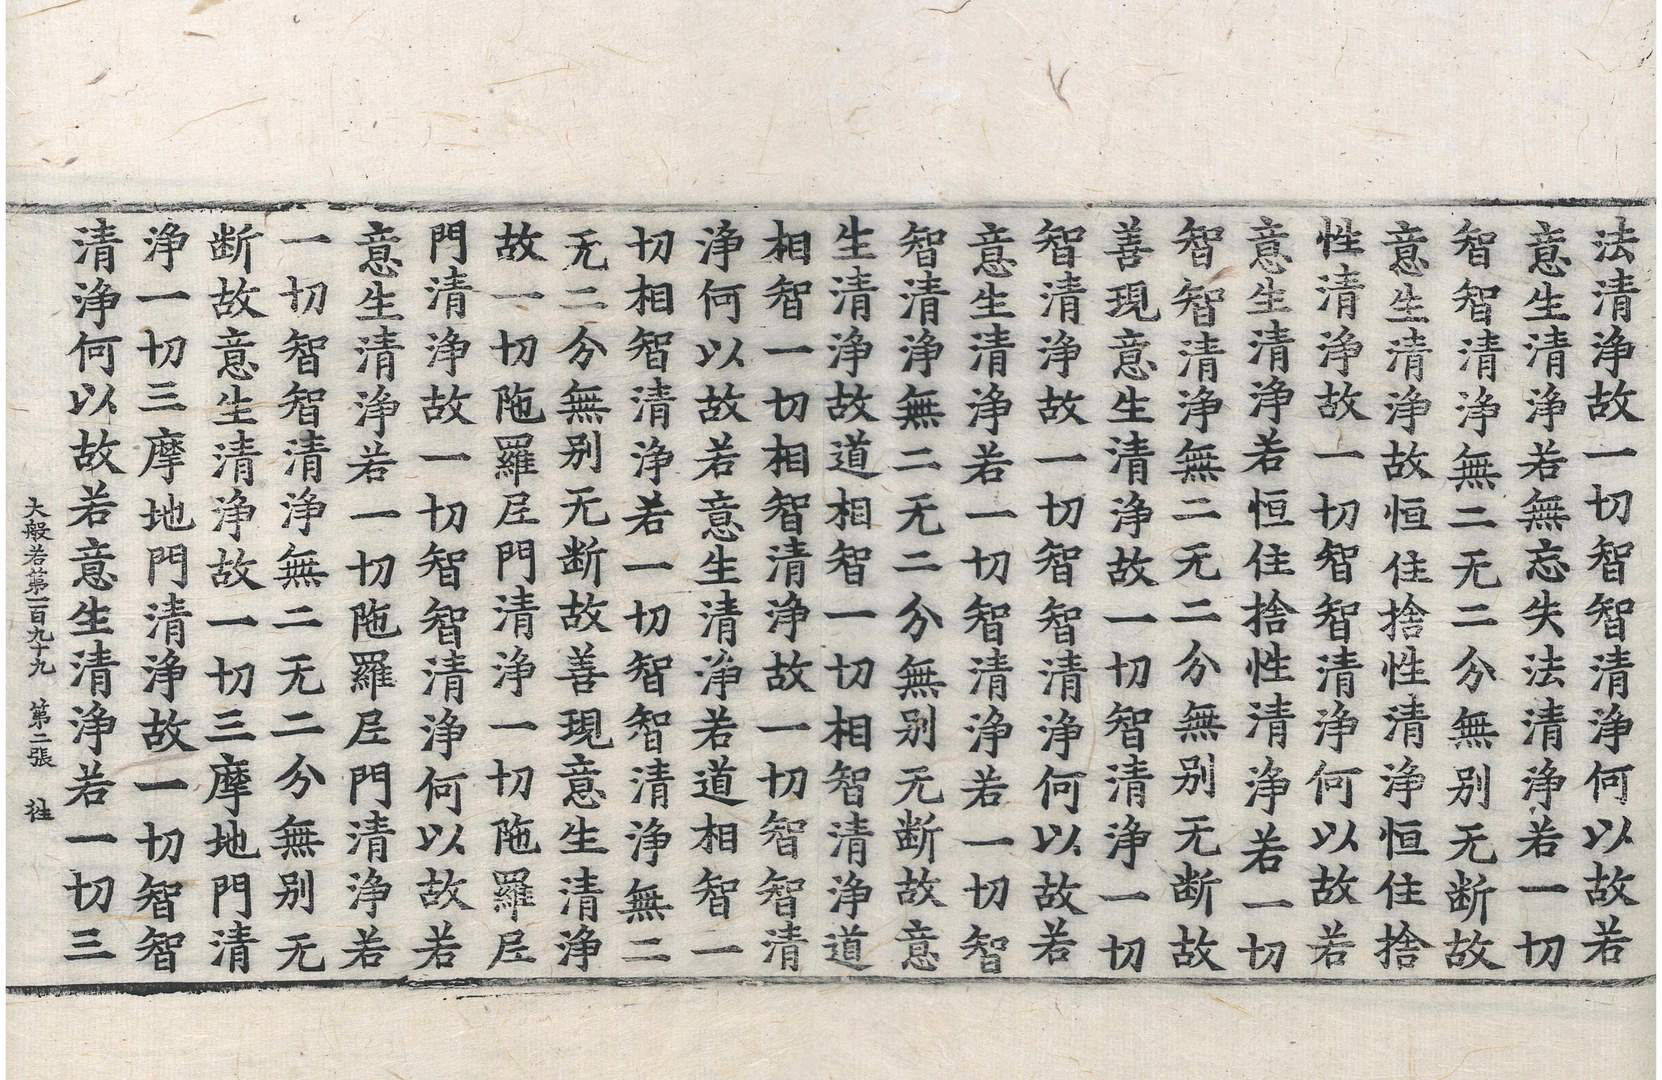 法清浄故一切智智清浄何以故若
意生清浄若無忘失法清浄若一切
智智清浄無二无二分無别无断故
意生清浄故恒住捨性清浄恒住捨
性清浄故一切智智清浄何以故若
意生清浄若恒住捨性清浄若一切
智智清浄無二无二分無别无断故
善現意生清浄故一切智清浄一切
智清浄故一切智智清浄何以故若
意生清浄若一切智清浄若一切智
智清浄無二无二分無别无断故意
生清浄故道相智一切相智清浄道
相智一切相智清浄故一切智智清
浄何以故若意生清浄若道相智一
切相智清浄若一切智智清浄無二
无二分無别无断故善現意生清浄
故一切陁羅尼門清浄一切陁羅尼
門清浄故一切智智清浄何以故若
意生清浄若一切陁羅尼門清浄若
一切智智清浄無二无二分無别无
断故意生清浄故一切三摩地門清
浄一切三摩地門清浄故一切智智
清浄何以故若意生清浄若一切三
大般若第一百九十九 第二張 往